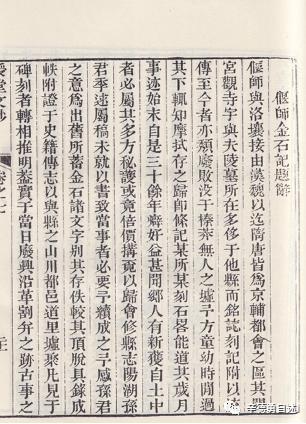 偃師金石記題辭
偃師與洛壤接由漢魏以迄隋唐皆為京輔都會之區其間
宮觀寺宇與夫陵墓所在多侈于他縣而銘誌刻記附以流
傳至今者亦類廢敗没于榛莽無人之墟予方童幼時間過
其下輒知摩拭存之歸師條記某所某刻石畧能道其歲月
事迹始末自是三十餘年嬉好益甚聞鄉人有新獲自土中
者必屬其多方秘護或竟倍價搆竟以歸會修縣志陽湖孫
君季逑屬稿未就以書致當事者必要予續成之予感孫君
之意為出舊所蓄金石諸文字别其存佚較其頂脫具錄成
帙附證于史籍傳志以與縣之山川都邑道里墟聚凡見于
碑刻者轉相推明葢實于當日廢興沿革劉弁之跡古事之
授堂文鈔
卷之七
李德勇自述